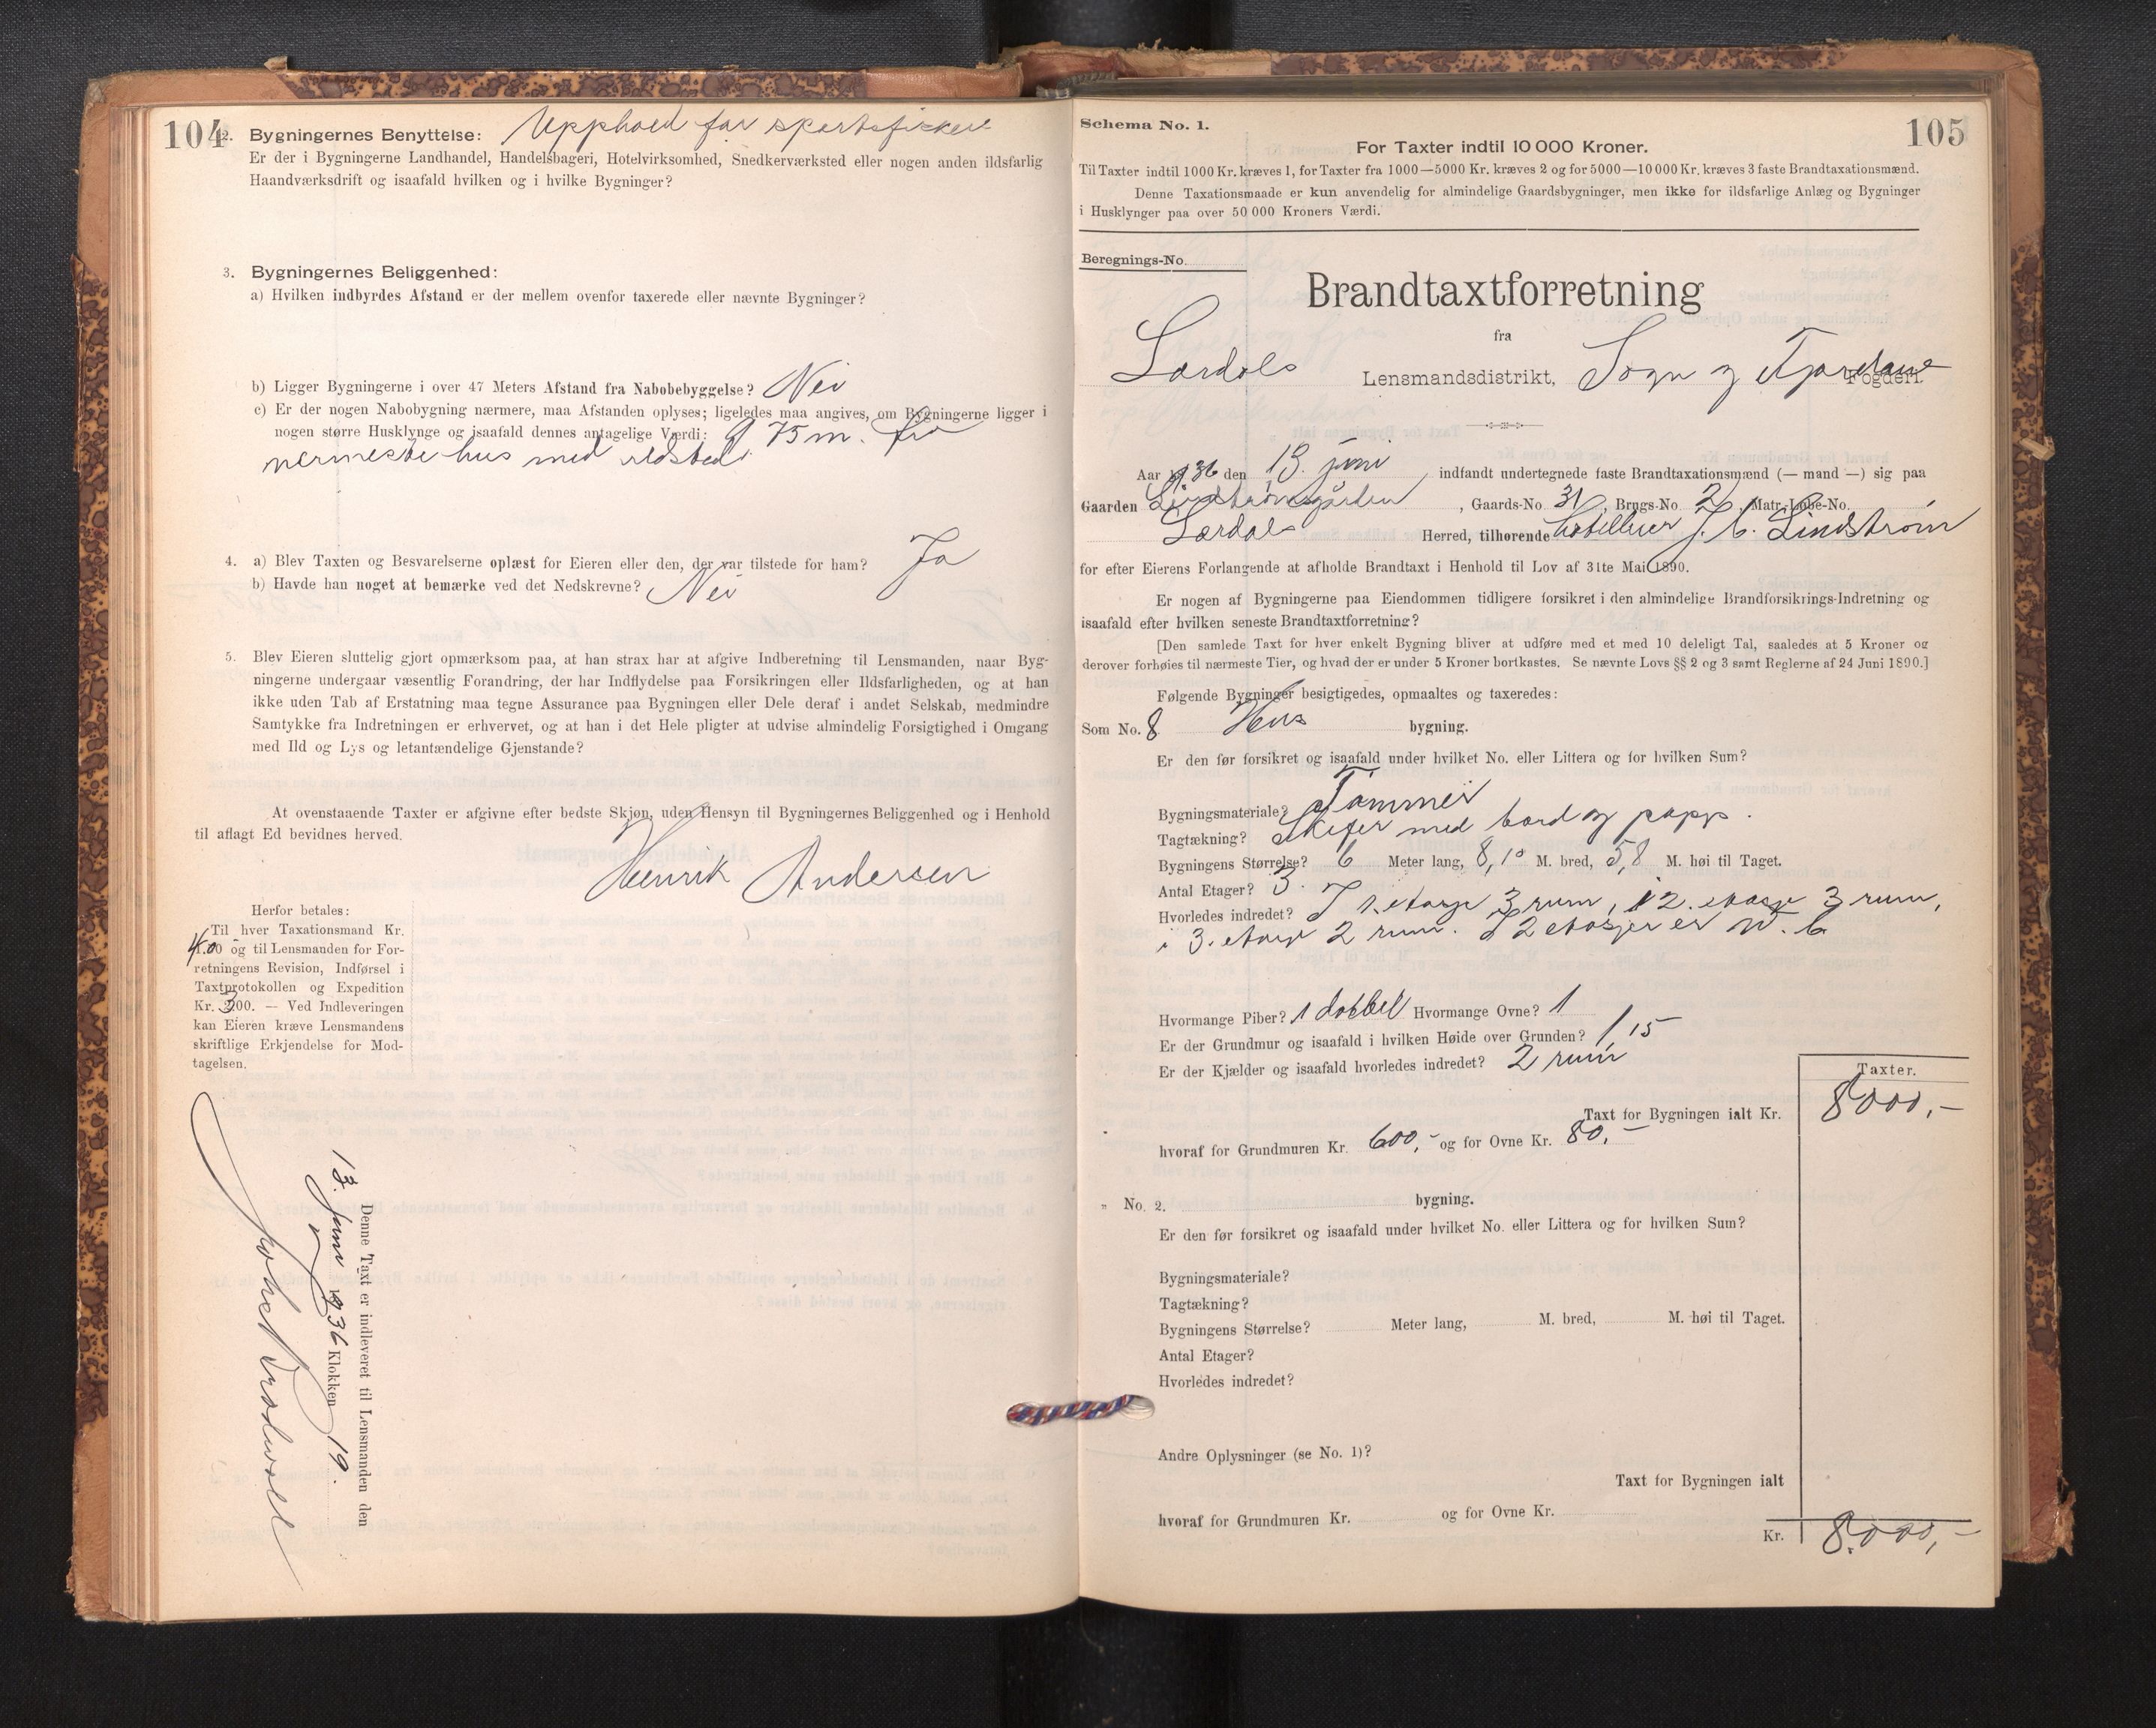 104
2. Bygningernes Benyttelse: Upphold for sportsfiskere
Er der i Bygningerne Landhandel, Handelsbageri, Hotelvirksomhed, Snedkerværksted eller nogen anden ildsfarlig
Haandværksdrift og isaafald hvilken og i hvilke Bygninger?
3. Bygningernes Beliggenhed:
a) Hvilken indbyrdes Afstand er der mellem ovenfor taxerede eller nævnte Bygninger?
b) Ligger Bygningerne i over 47 Meters Afstand fra Nabobebyggelse? Nei
c) Er der nogen Nabobygning nærmere, maa Afstanden oplyses; ligeledes maa angives, om Bygningerne ligger i
nogen større Husklynge og isaafald dennes antagelige Værdi: 9,75 m. fra
nermeste hus med ildsted.
4. a) Blev Taxten og Besvarelserne oplæst for Eieren eller den, der var tilstede for ham? Ja
b) Havde han noget at bemærke ved det Nedskrevne? Nei
5. Blev Eieren sluttelig gjort opmærksom paa, at han strax har at afgive Indberetning til Lensmanden, naar Byg-
ningerne undergaar væsentlig Forandring, der har Indflydelse paa Forsikringen eller Ildsfarligheden, og at han
ikke uden Tab af Erstatning maa tegne Assurance paa Bygningen eller Dele deraf i andet Selskab, medmindre
Samtykke fra Indretningen er erhvervet, og at han i det Hele pligter at udvise almindelig Forsigtighed i Omgang
med Ild og Lys og letantændelige Gjenstande?
At ovenstaaende Taxter er afgivne efter bedste Skjøn, uden Hensyn til Bygningernes Beliggenhed og i Henhold
til aflagt Ed bevidnes herved.
Henrik Andersen
Herfor betales:
Til hver Taxationsmand Kr.
4.00 og til Lensmanden for For-
retningens Revision, Indførsel i
Taxtprotokollen og Expedition
Kr. 3.00. — Ved Indleveringen
kan Eieren kræve Lensmandens
skriftlige Erkjendelse for Mod-
tagelsen.
Denne Taxt er indleveret til Lensmanden den
13. juni 1936 Klokken 19.
105
Schema No. 1.
For Taxter indtil 10 000 Kroner.
Til Taxter indtil 1000 Kr. kræves 1, for Taxter fra 1000—5000 Kr. kræves 2 og for 5000—10 000 Kr. kræves 3 faste Brandtaxationsmænd.
Denne Taxationsmaade er kun anvendelig for almindelige Gaardsbygninger, men ikke for ildsfarlige Anlæg og Bygninger
i Husklynger paa over 50 000 Kroners Værdi.
Beregnings-No.
Brandtaxtforretning
fra
Lærdals Lensmandsdistrikt, Sogn og Fjordane Fogderi.
Aar 1936 den 13. juni indfandt undertegnede faste Brandtaxationsmænd (— mand —) sig paa
Gaarden Lindstrømsgården, Gaards-No. 31, Brugs-No. 2, Matr.-Løbe-No.
Lærdals Herred, tilhørende hotelleier J. C. Lindstrøm
for efter Eierens Forlangende at afholde Brandtaxt i Henhold til Lov af 31te Mai 1890.
Er nogen af Bygningerne paa Eiendommen tidligere forsikret i den almindelige Brandforsikrings-Indretning og
isaafald efter hvilken seneste Brandtaxtforretning?
[Den samlede Taxt for hver enkelt Bygning bliver at udføre med et med 10 deleligt Tal, saaledes at 5 Kroner og
derover forhøies til nærmeste Tier, og hvad der er under 5 Kroner bortkastes. Se nævnte Lovs §§ 2 og 3 samt Reglerne af 24 Juni 1890.]
Følgende Bygninger besigtigedes, opmaaltes og taxeredes:
Som No. 8 Hus bygning.
Er den før forsikret og isaafald under hvilket No. eller Littera og for hvilken Sum?
Bygningsmateriale? Tømmer
Tagtækning? Skifer med bord og papp.
Bygningens Størrelse? 6 Meter lang, 8,10 M. bred, 5,8 M. høi til Taget.
Antal Etager? 3.
Hvorledes indredet? I 1. etasje 3 rum, i 2. etasje 3 rum,
i 3. etasje 2 rum. I 2 etasjer er W. C.
Hvormange Piber? 1 dobbel Hvormange Ovne? 1
Er der Grundmur og isaafald i hvilken Høide over Grunden? 1,15
Er der Kjælder og isaafald hvorledes indredet? 2 rum
Taxter.
Taxt for Bygningen ialt Kr. 8000,-
hvoraf for Grundmuren Kr. 600,- og for Ovne Kr. 80,-
" No. 2. bygning.
Er den før forsikret og isaafald under hvilket No. eller Littera og for hvilken Sum?
Bygningsmateriale?
Tagtækning?
Bygningens Størrelse? Meter lang, M. bred, M. høi til Taget.
Antal Etager?
Hvorledes indredet?
Andre Oplysninger (se No. 1)?
Taxt for Bygningen ialt
hvoraf for Grundmuren Kr. og for Ovne Kr.
Kr. 8.000,-